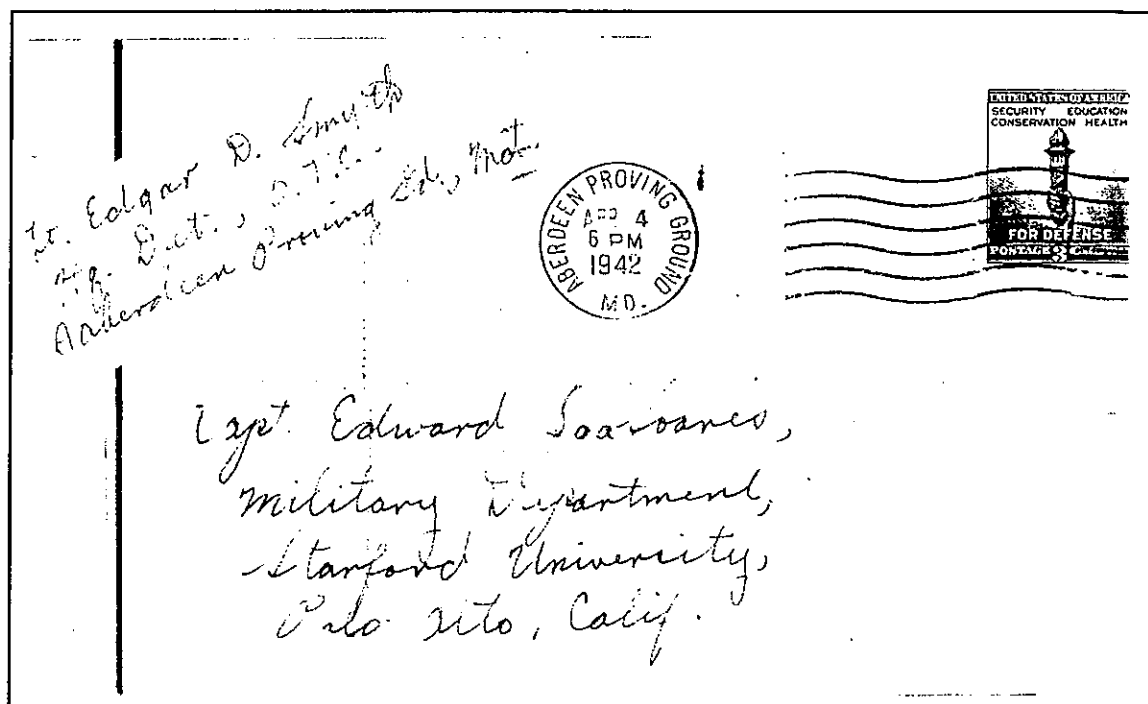 Lt. Edgar D. Smyth
Hq. Det., O.T.C.
Aberdeen Proving Gd., Md.
ABERDEEN PROVING GROUND
APR 4
6 PM
1942
MD.
UNITED STATES OF AMERICA
SECURITY EDUCATION
CONSERVATION HEALTH
FOR DEFENSE
POSTAGE 3
Capt. Edward
Military Department,
Stanford University,
Palo Alto, Calif.